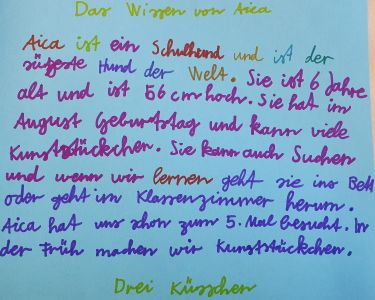 Das Wissen von Aica
Aica ist ein Schulhund und ist der
süßeste Hund der Welt. Sie ist 6 Jahre
alt und ist 56 cm hoch. Sie hat im
August Geburtstag und kann viele
Kunststückchen. Sie kann auch Suchen
und wenn wir lernen geht sie ins Bett
oder geht im Klassenzimmer herum.
Aica hat uns schon zum 5. Mal besucht. In
der Früh machen wir Kunststückchen.
Drei Küsschen